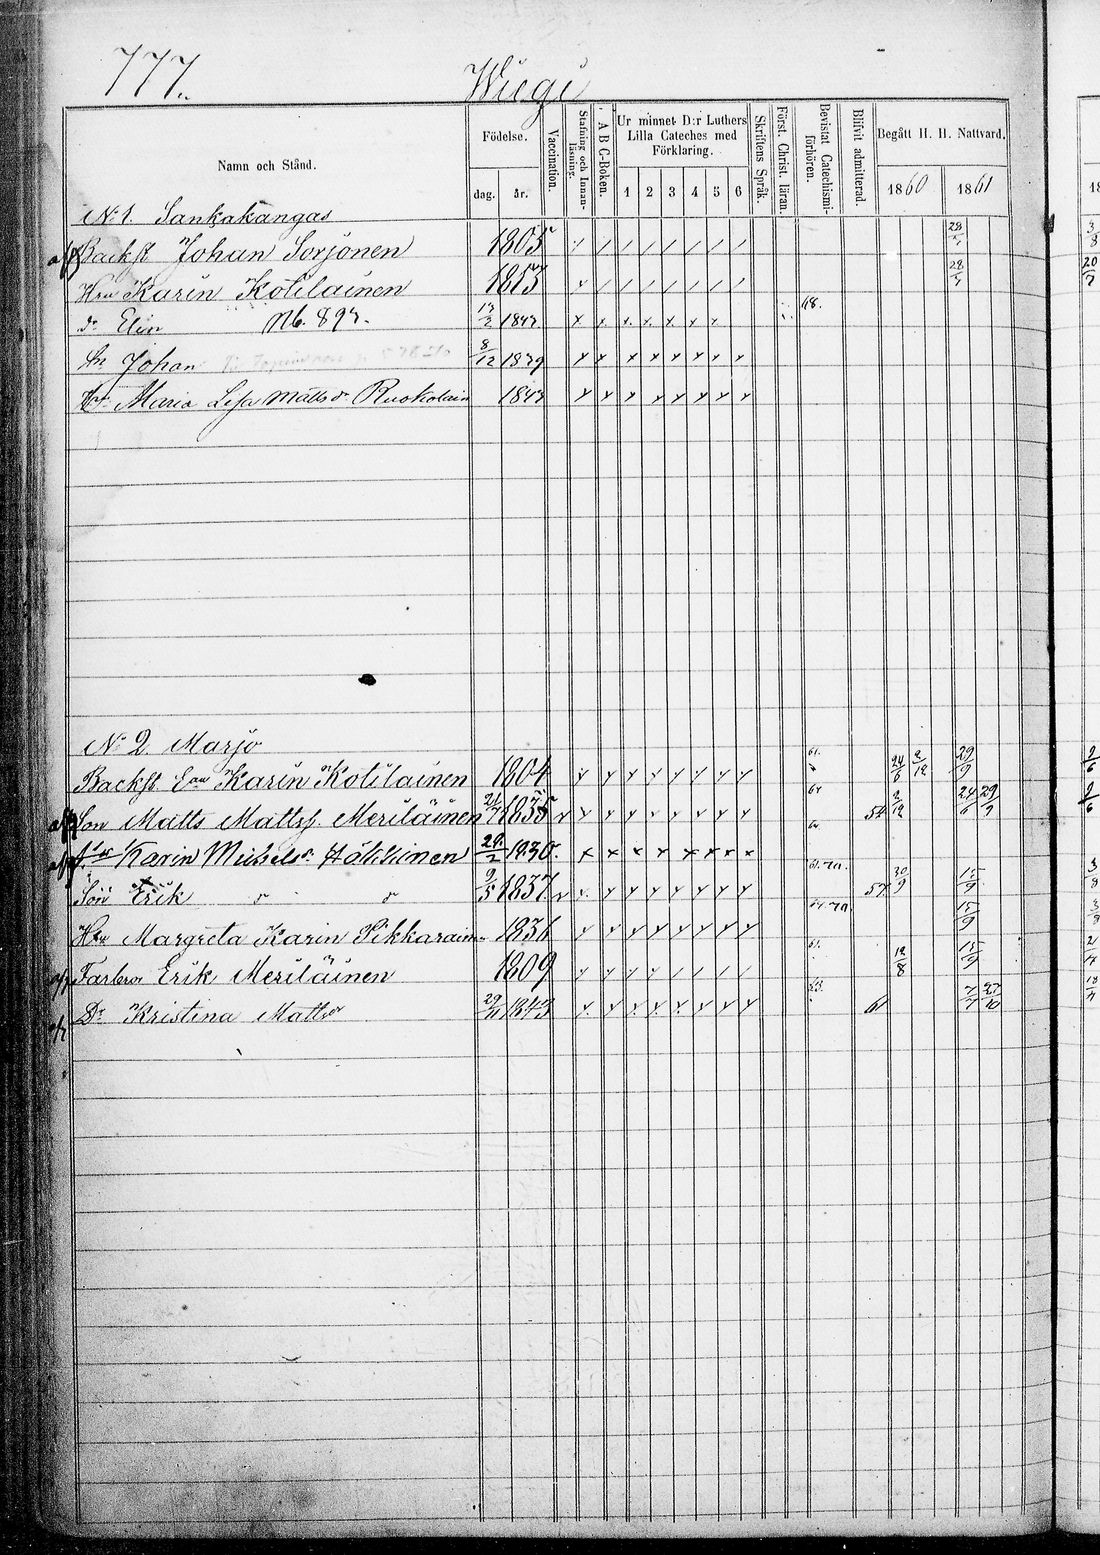 777.
Wiegi
Namn och Stånd.
Födelse.
dag.
år.
Vaccination.
Stafning och Innanläsning.
A B C-Boken.
Ur minnet D:r Luthers Lilla Cateches med Förklaring.
1 2 3 4 5 6
Skriftens Språk.
Först. Christ. läran.
Bevistat Catechismiförhören.
Blifvit admitterad.
Begått H. H. Nattvard.
1860 1861
No 1. Sankakangas
Backst Johan Sorjonen 1805 28/7
Hru Karin Kotilainen 1813 28/7
dr Elin Nb. 897. 13/2 1847 68.
Sn Johan 8/12 1839
Hu Maria Lisa Matts dr Ruokolain 1847
No 2 Marjo
Backst Enk Karin Kotilainen 1804 61. 24/6 2/12 29/9
Son Matts Mattss. Meriläinen 21/7 1835 v 64 54 2/12 24/6 29/9
Karin Michelsdr Häkkinen 28/2 1830.
Son Erik 9/5 1837 v 61. 70. 57 30/9 15/9
Hru Margreta Karin Pikkarain 1836 64. 70. 15/9
Farbror Erik Meriläinen 1809 61. 12/8 15/9
Dr Kristina Mattsdr 29/11 1843 63. 61 7/7 27/10